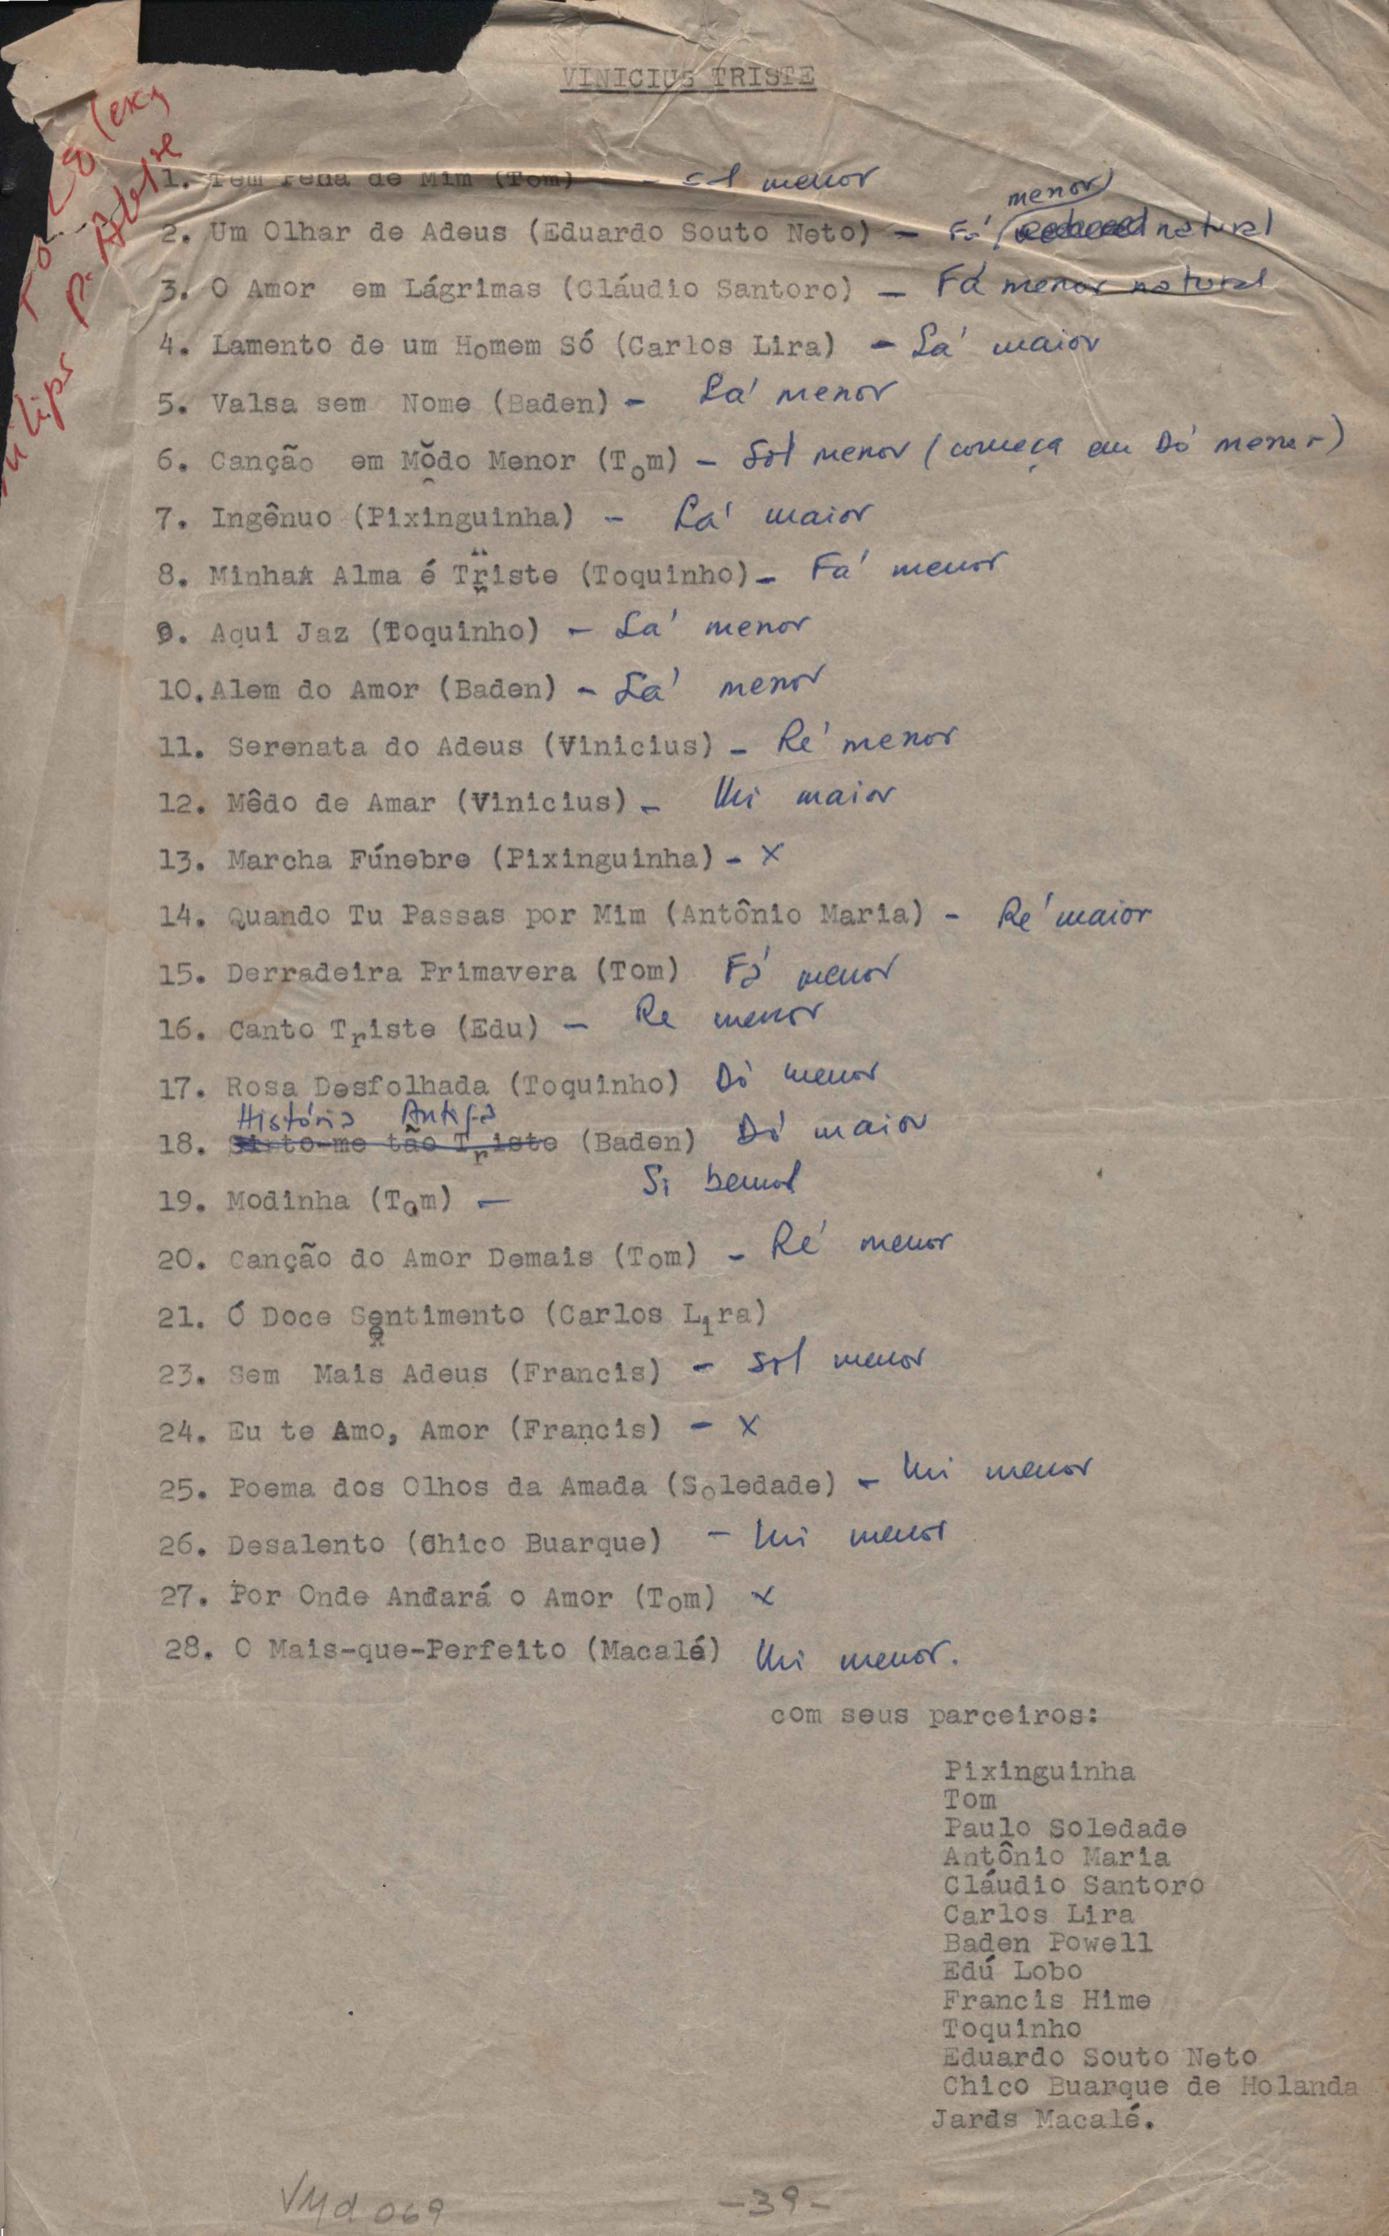 VINICIUS TRISTE
1. Tem Pena de Mim (Tom) - sol menor
menor
2. Um Olhar de Adeus (Eduardo Souto Neto) - Fá natural
3. O Amor em Lágrimas (Cláudio Santoro) - Fá menor natural
4. Lamento de um Homem Só (Carlos Lira) - Lá maior
5. Valsa sem Nome (Baden) - Lá menor
6. Canção em Mŏdo Menor (Tom) - Sol menor (começa em Dó menor)
7. Ingênuo (Pixinguinha) - Lá maior
8. Minha Alma é Triste (Toquinho) - Fá menor
9. Aqui Jaz (Toquinho) - Lá menor
10. Alem do Amor (Baden) - Lá menor
11. Serenata do Adeus (Vinicius) - Ré menor
12. Mêdo de Amar (Vinicius) - Mi maior
13. Marcha Fúnebre (Pixinguinha) - x
14. Quando Tu Passas por Mim (Antônio Maria) - Ré maior
15. Derradeira Primavera (Tom) Fá menor
16. Canto Triste (Edu) - Re menor
17. Rosa Desfolhada (Toquinho) Dó menor
História Antiga
18. Sinto-me tão Triste (Baden) Dó maior
19. Modinha (Tom) - Si bemol
20. Canção do Amor Demais (Tom) - Ré menor
21. Ó Doce Sentimento (Carlos Lira)
23. Sem Mais Adeus (Francis) - sol menor
24. Eu te Amo, Amor (Francis) - x
25. Poema dos Olhos da Amada (Soledade) - Mi menor
26. Desalento (Chico Buarque) - Mi menor
27. Por Onde Andará o Amor (Tom) x
28. O Mais-que-Perfeito (Macalé) Mi menor.
com seus parceiros:
Pixinguinha
Tom
Paulo Soledade
Antônio Maria
Cláudio Santoro
Carlos Lira
Baden Powell
Edú Lobo
Francis Hime
Toquinho
Eduardo Souto Neto
Chico Buarque de Holanda
Jards Macalé.
VMd 069
-39-